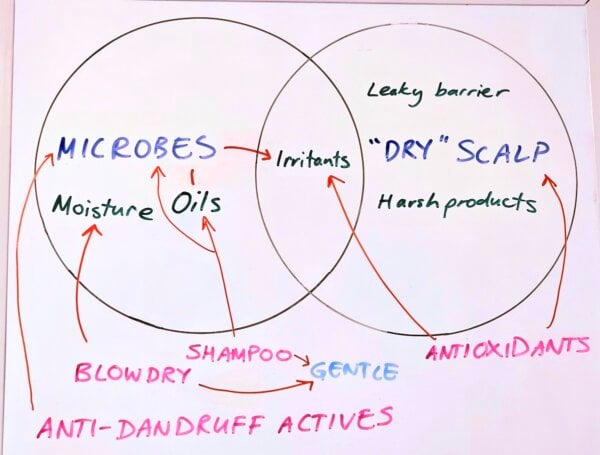 Leaky barrier
MICROBES
Irritants
"DRY" SCALP
Moisture
Oils
Harsh products
SHAMPOO
ANTIOXIDANTS
BLOWDRY
GENTLE
ANTI-DANDRUFF ACTIVES